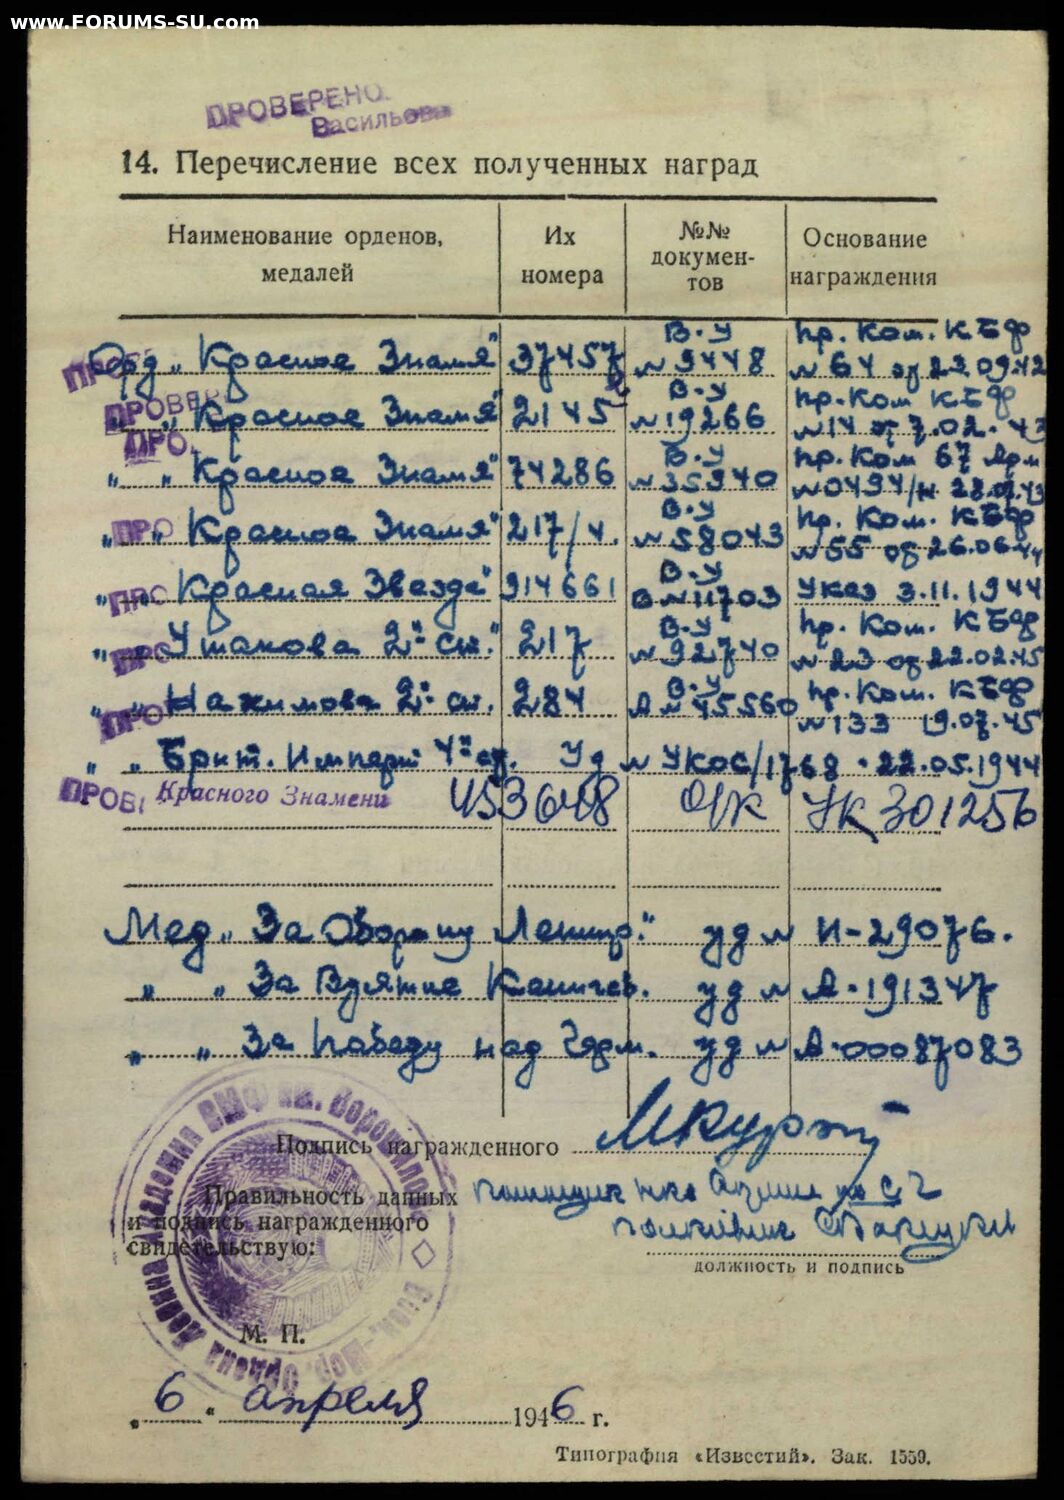 www.FORUMS-SU.com
ПРОВЕРЕНО
Васильева
14. Перечисление всех полученных наград
Наименование орденов, медалей
Их номера
№№ документов
Основание награждения
Орд „Красное Знамя" 37457 В.У №9448 Пр. Ком. КБФ №64 от 22.09.42
„ „Красное Знамя" 2145 В.У №19266 Пр. Ком КБФ №14 от 7.02.43
„ „Красное Знамя" 74286 В.У №35940 Пр. Ком 67 Арм №0494/н
„ „Красное Знамя" 217/4. В.У №58043 Пр. Ком. КБФ №55 от 26.06.44
„ „Красная Звезда" 914661 В.У В№11703 Указ 3.11.1944
„ „Ушакова 2й ст." 217 В.У №92740 Пр. Ком. КБФ №23 от 22.02.45
„ „Нахимова 2й ст. 284 В.У А№45560 Пр. Ком. КБФ №133 19.07.45
„ „Брит. Империи 4й ст. Уд № УКОС/1768 · 22.05.1944
ПРОВ Красного Знамени 453648 О/К НК 301256
Мед „За Оборону Ленингр." уд № И-29076.
„ „За Взятие Кенигсб. уд № А·191347
„ „За Победу над Герм. уд № А·00087083
Подпись награжденного
Правильность данных
и подпись награжденного
свидетельствую:
помощник нка Академии по СЧ
полковник
должность и подпись
М. П.
Ордена Ленина Академия ВМФ им. Ворошилова
„6" апреля 1946 г.
Типография «Известий». Зак. 1559.